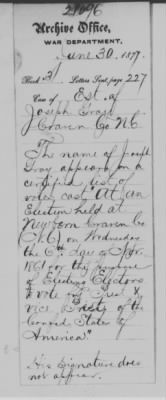 21096
Archive Office,
WAR DEPARTMENT,
June 30, 1877.
Book 31 Letters Sent, page 227
Case of Est. of
Joseph Gray
Craven Co N.C.
The name of Joseph
Gray appears in a
certified list of
votes cast "At an
Election held at
Newbern Craven Co
(N.C.) on Wednesday
the 6th day of Nov.
1861 for the purpose
of Electing Electors
to vote for Prest &
vice Prest of the
Confed States of
America"
His signature does
not appear.